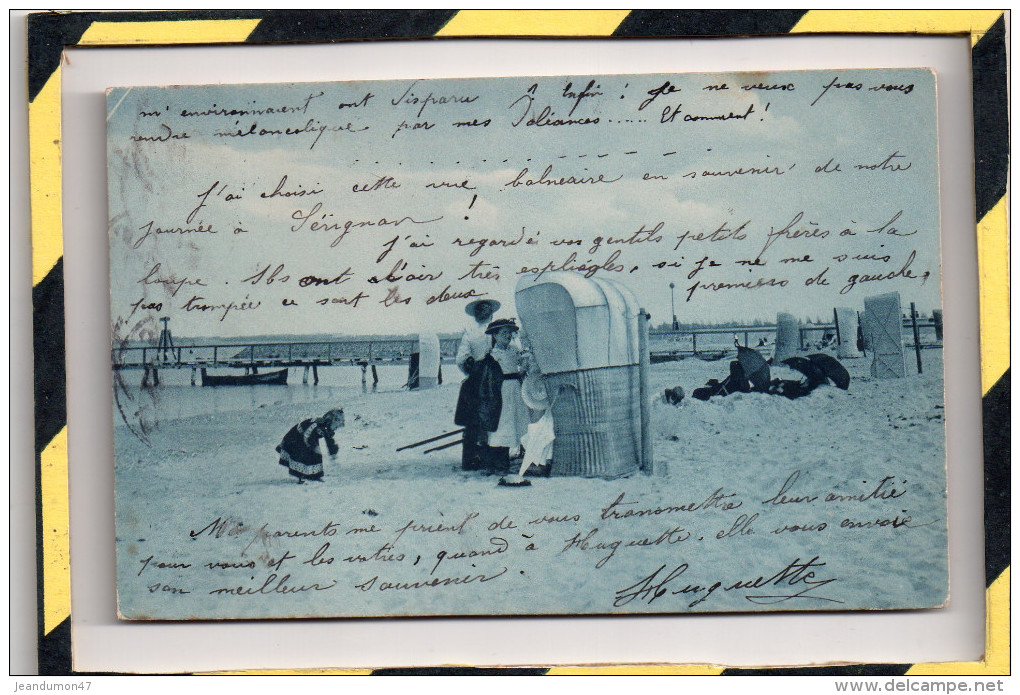 m'environnaient ont disparu à Enfin! Je ne veux pas vous
rendre mélancolique par mes Doléances ..... Et comment!
J'ai choisi cette vue balnéaire en souvenir de notre
journée à Sérignan!
J'ai regardé vos gentils petits frères à la
loupe. Ils ont l'air très espliègles, si je ne me suis
pas trompée ce sont les deux premiers de gauche.
Mes parents me prient de vous transmettre leur amitié
pour vous et les votres, quand à Huguette. elle vous envoie
son meilleur souvenir.
Huguette
jeandumon47